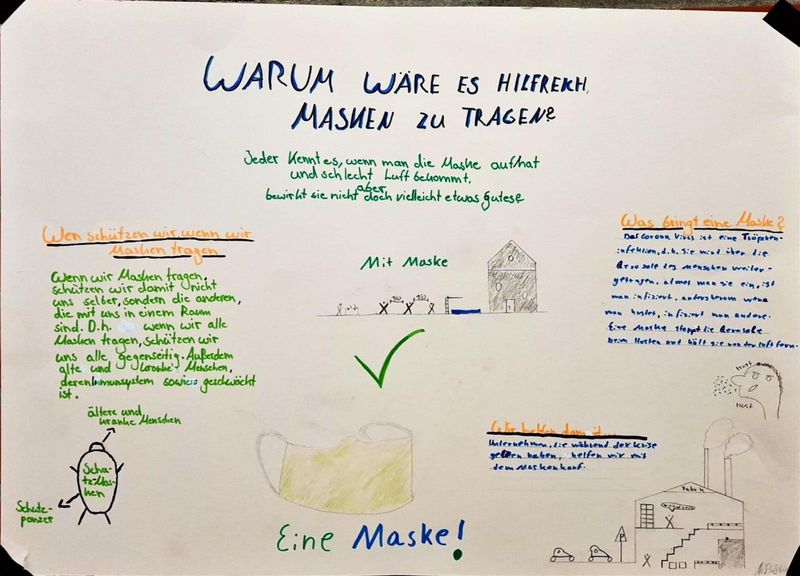 WARUM WÄRE ES HILFREICH,
MASKEN ZU TRAGEN?
Jeder Kennt es, wenn man die Maske aufhat
und schlecht Luft bekommt,
aber
bewirkt sie nicht doch vielleicht etwas Gutes?
Wen schützen wir wenn wir
Masken tragen
Wenn wir Masken tragen,
schützen wir damit nicht
uns selber, sondern die anderen,
die mit uns in einem Raum
sind. D.h. wenn wir alle
Masken tragen, schützen wir
uns alle gegenseitig. Außerdem
alte und kranke Menschen,
deren Immunsystem sowieso geschwächt
ist.
ältere und
kranke Menschen
Schu-
tz-Mas-
ken
Schutz-
panzer
Mit Maske
Eine Maske!
Was bringt eine Maske?
Das Corona Virus ist eine Tröpfchen-
infektion, d.h. Sie wird über die
Aerosole des menschen weiter-
getragen, atmet man sie ein, ist
man infiziert, andersherum wenn
man hustet, infiziert man andere.
Eine Maske stoppt die Aerosole
beim Husten und hält sie von der Luft fern.
hust
hust
Wir helfen damit...
Unternehmen, die während der Krise
gelitten haben, helfen wir mit
dem Maskenkauf.
Fabrik